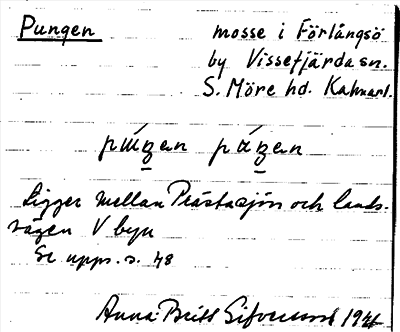 Pungen mosse i Förlångsö
by Vissefjärda sn.
S. Möre hd. Kalmarl.
Ligger mellan Prästasjön och lands-
vägen V byn
Se upps. s. 48
Anna-Britt 1944